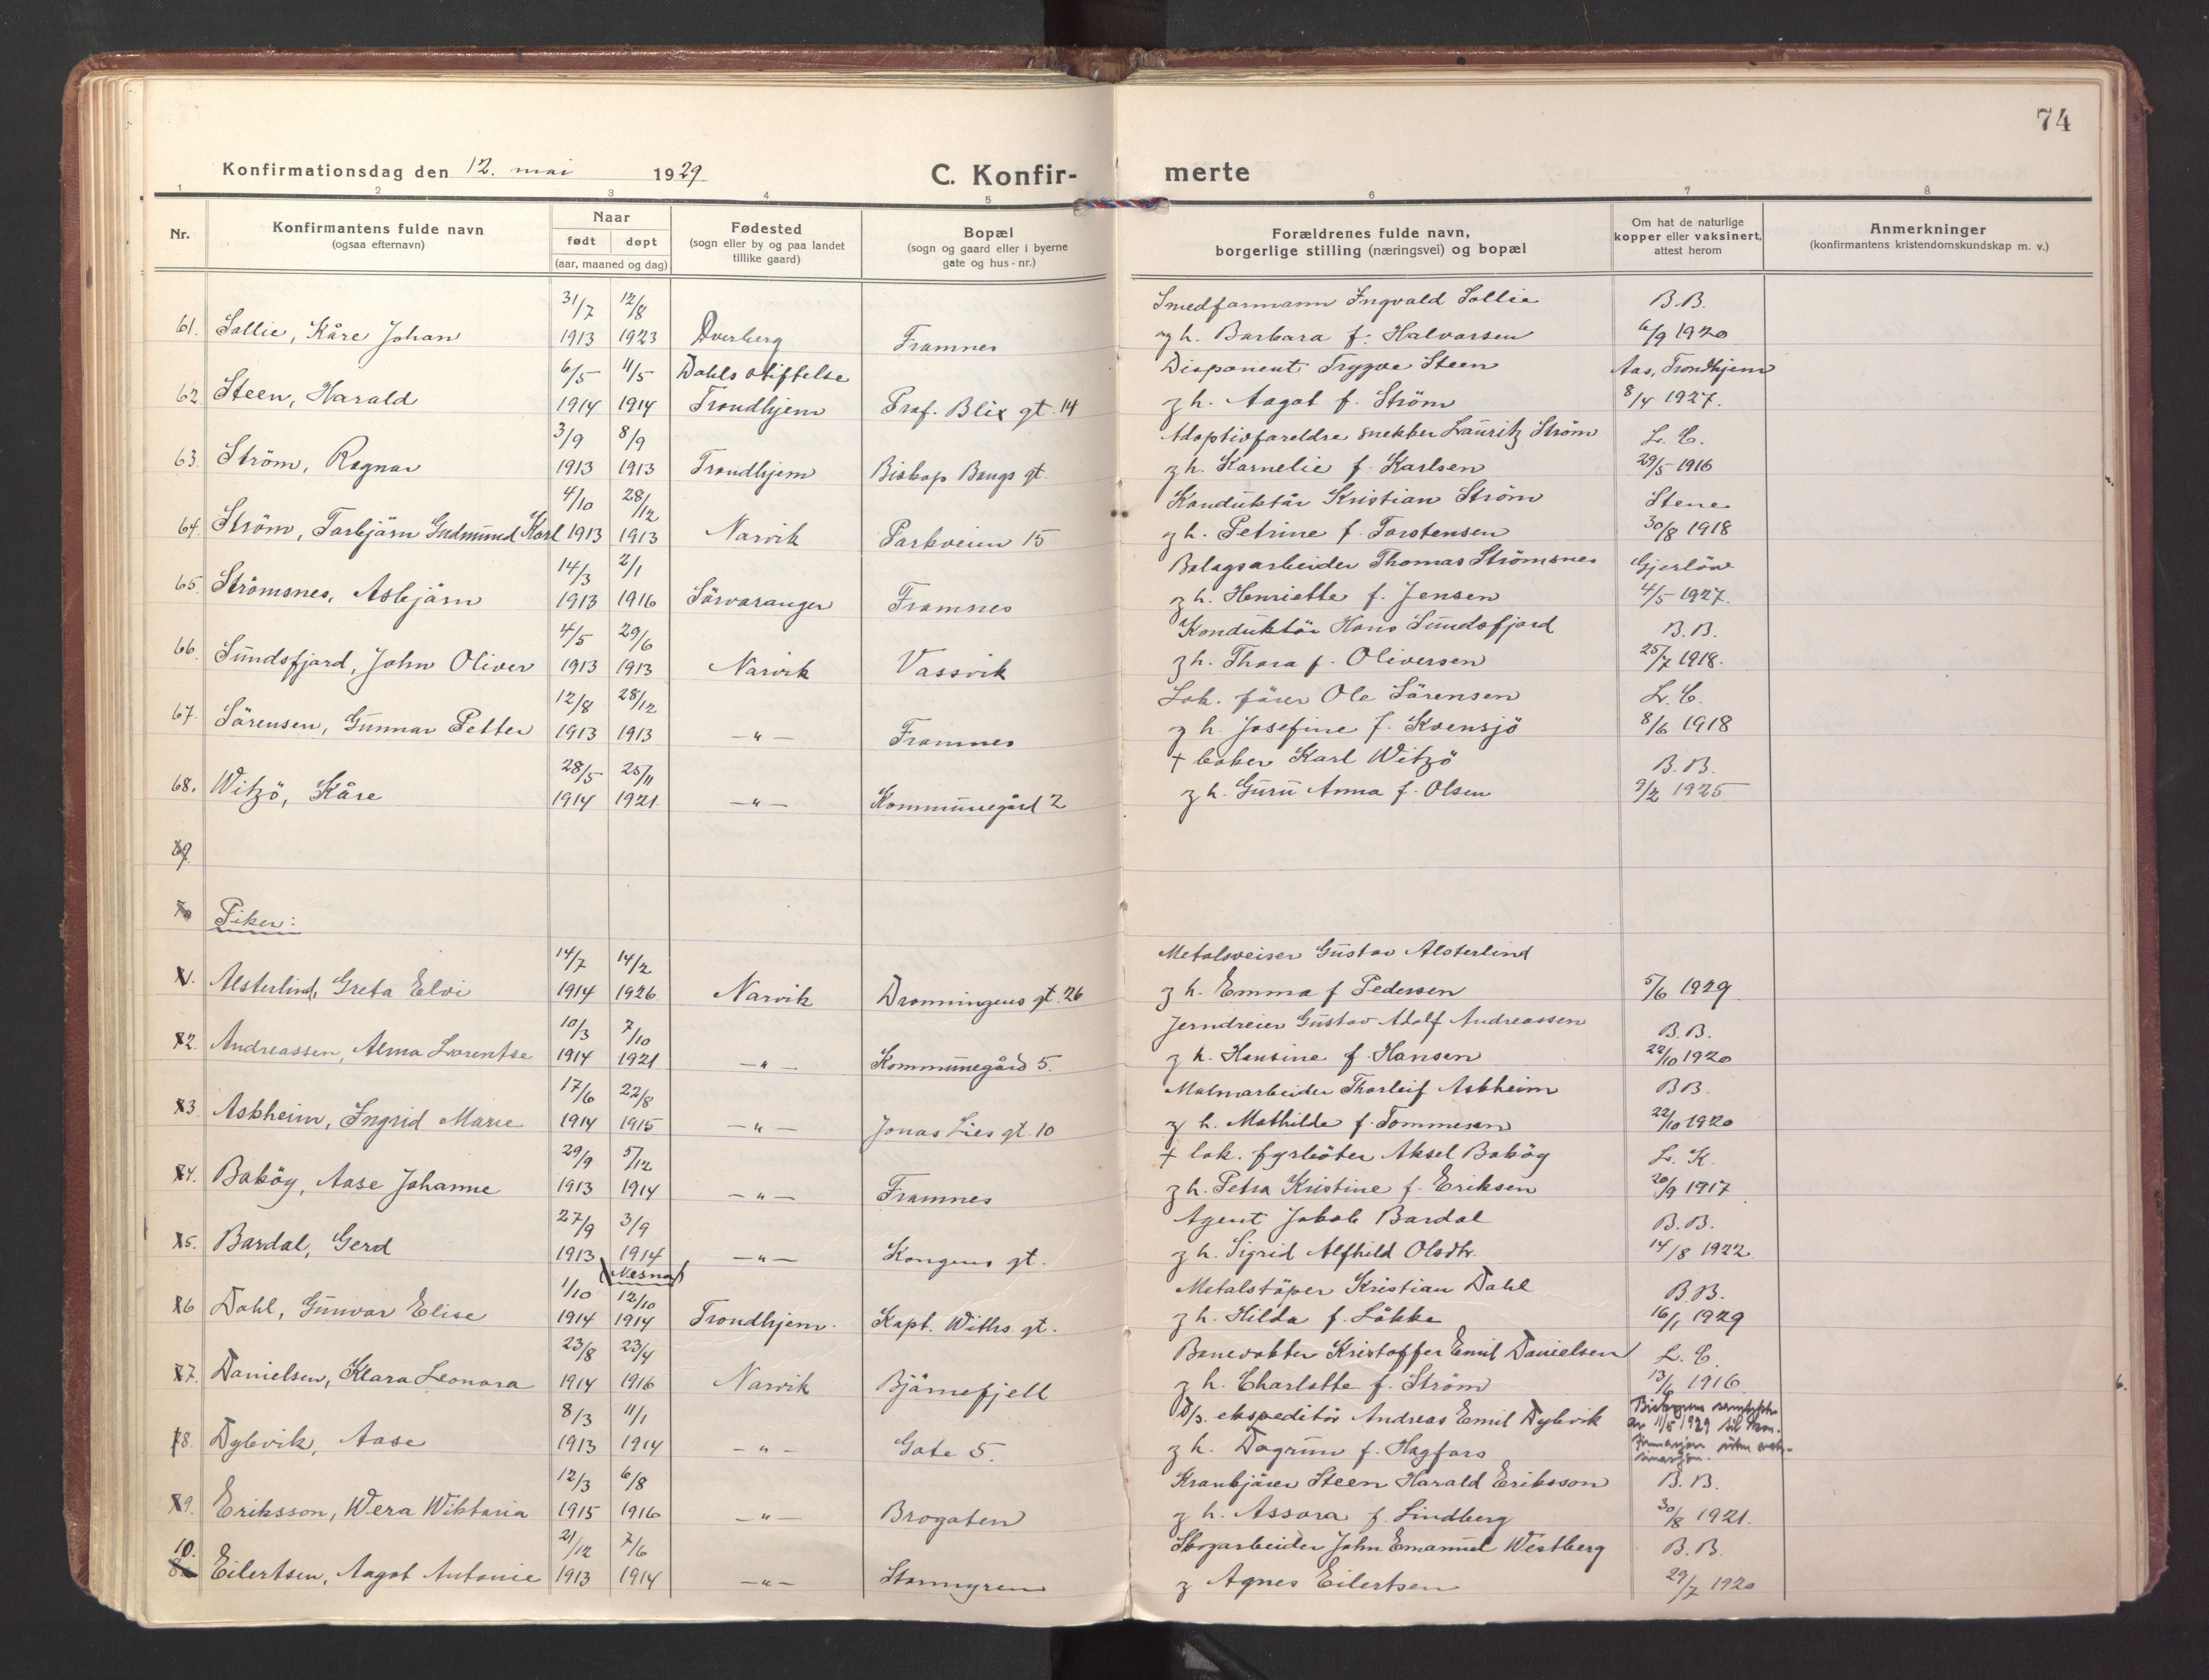 74
Konfirmationsdag den 12. mai 1929
C. Konfir- merte
1 2 3 4 5 6 7 8
Nr.
Konfirmantens fulde navn
(ogsaa efternavn)
Naar
født døpt
(aar, maaned og dag)
Fødested
(sogn eller by og paa landet
tillike gaard)
Bopæl
(sogn og gaard eller i byerne
gate og hus-nr.)
Forældrenes fulde navn,
borgerlige stilling (næringsvei) og bopæl
Om hat de naturlige
kopper eller vaksinert,
attest herom
Anmerkninger
(konfirmantens kristendomskundskap m. v.)
31/7 12/8 Smedformann Ingvald Sollie B.B.
61. Sollie, Kåre Johan 1913 1923 Dverberg Framnes og h. Barbara f. Halvorsen 6/9 1920
6/5 11/5 Dahls stiftelse Disponent Trygve Steen Aas, Trondhjem
62. Steen, Harald 1914 1914 Trondhjem Prof. Blix gt. 14 og h. Aagot f. Ström 8/4 1927.
3/9 8/9 Adoptivforeldre snekker Lauritz Ström L. C.
63. Ström, Ragnar 1913 1913 Trondhjem Biskop Bangs gt. og h. Kornelie f. Karlsen 29/5 1916
4/10 28/12 Konduktör Kristian Ström Stene
64. Ström, Torbjörn Gudmund Karl 1913 1913 Narvik Parkveien 15 og h. Petrine f. Torstensen 30/8 1918
14/3 2/1 Bolagsarbeider Thomas Strömsnes Gjerlöw
65. Strömsnes, Asbjörn 1913 1916 Sörvaranger Framnes og h. Henriette f. Jensen 4/5 1927.
4/5 29/6 Konduktör Hans Sundsfjord B.B.
66. Sundsfjord, John Oliver 1913 1913 Narvik Vassvik og h. Thora f. Oliversen 25/7 1918.
12/8 28/12 Lok. förer Ole Sörensen L. C.
67. Sörensen, Gunnar Petter 1913 1913 —"— Framnes og h. Josefine f. Kvensjö 8/6 1918
28/5 25/11 + baker Karl Witzö B.B.
68. Witzö, Kåre 1914 1921 —"— Kommunegård 2 og h. Guru Anna f. Olsen 9/2 1925
69
70 Piker:
14/7 14/2 Metalsveiser Gustav Alsterlind
1. Alsterlind, Greta Elvi 1914 1926 Narvik Dronningens gt. 26 og h. Emma f Pedersen 5/6 1929.
10/3 7/10 Jerndreier Gustav Adolf Andreassen B.B.
2. Andreassen, Alma Lorentse 1914 1921 —"— Kommunegård 5. og h. Hansine f. Hansen 22/10 1920
17/6 22/8 Malmarbeider Thorleif Askheim B.B.
3 Askheim, Ingrid Marie 1914 1915 —"— Jonas Lies gt. 10 og h. Mathilde f. Tommesen 22/10 1920
29/9 5/12 + lok. fyrböter Aksel Boköy L. K.
4. Boköy, Aase Johanne 1913 1914 —"— Framnes og h. Petra Kristine f. Eriksen 20/9 1917
27/9 3/9 Agent Jakob Bardal B.B.
5. Bardal, Gerd 1913 1914 —"— Kongens gt. og h. Sigrid Alfhild Olsdtr. 14/8 1922
(Nesna)
1/10 12/10 Metalstöper Kristian Dahl B.B.
6 Dahl, Gunvor Elise 1914 1914 Trondhjem. Kapt. Withs. gt. og h. Hilda f. Lökke 16/1 1929
23/8 23/4 Banevokter Kristoffer Emil Danielsen L. C.
7. Danielsen, Klara Leonora 1914 1916 Narvik Björnefjell og h. Charlotte f. Ström 13/6 1916
8/3 11/1 D/s. ekspeditör Andreas Emil Dybvik Biskopens samtykke
av 11/5 1929 til kon-
8. Dybvik, Aase 1913 1914 —"— Gate 5. og h. Dagrun f. Hagfors firmasjon uten vak-
sinasjon.
12/3 6/8 Krankjörer Steen Harald Eriksson B.B.
9. Eriksson, Wera Wiktoria 1915 1916 —"— Brogaten og h. Assora f. Lindberg 30/8 1921.
21/12 7/6 Skogarbeider John Emanuel Westberg B.B.
10. Eilertsen, Aagot Antonie 1913 1914 —"— Stormyren og Agnes Eilertsen 29/7 1920